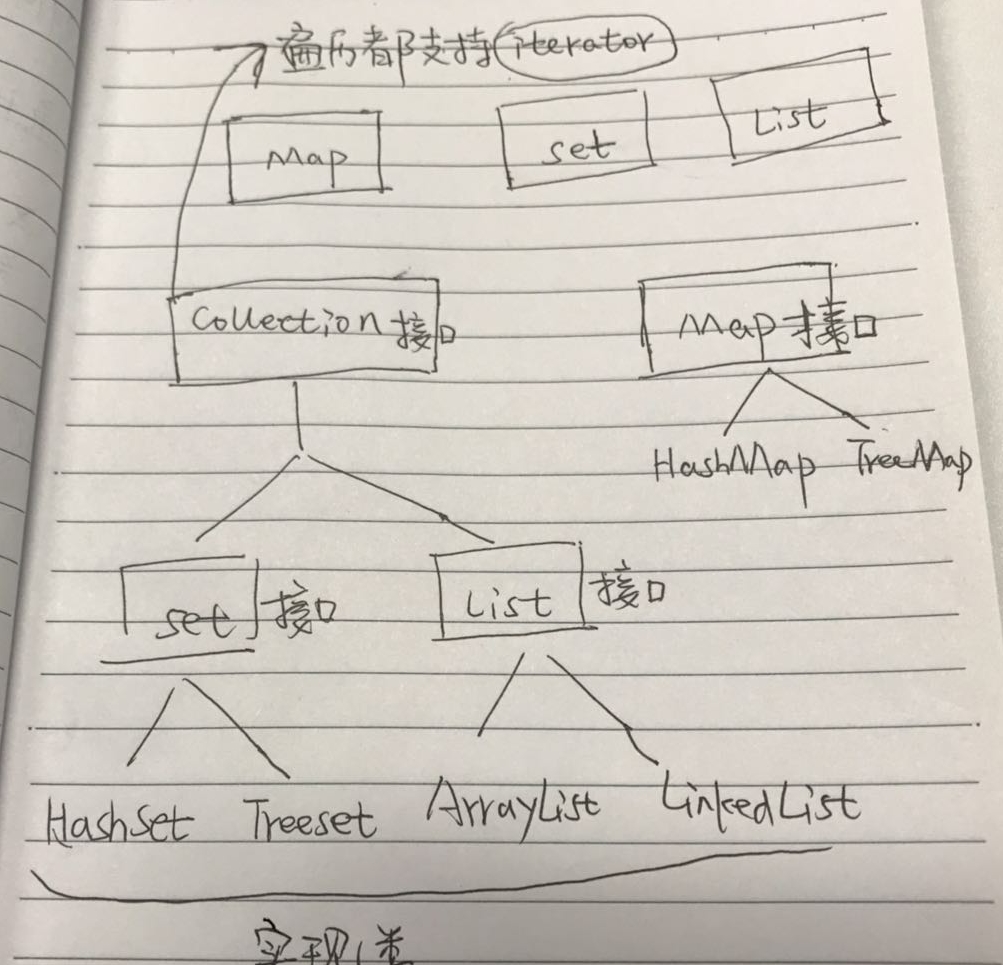 遍历都支持iterator
Map set List
Collection 接口 Map 接口
HashMap TreeMap
set 接口 List 接口
HashSet Treeset ArrayList LinkedList
实现类